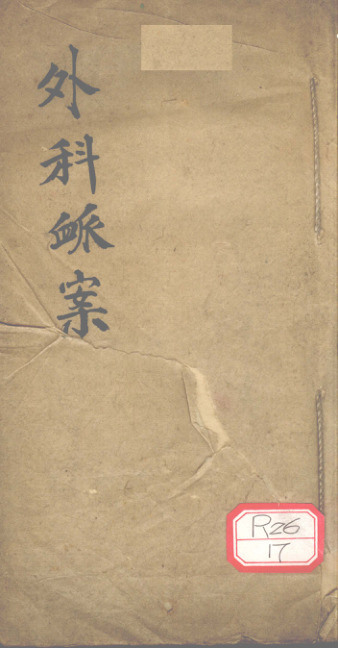 外科衇案
R26
17